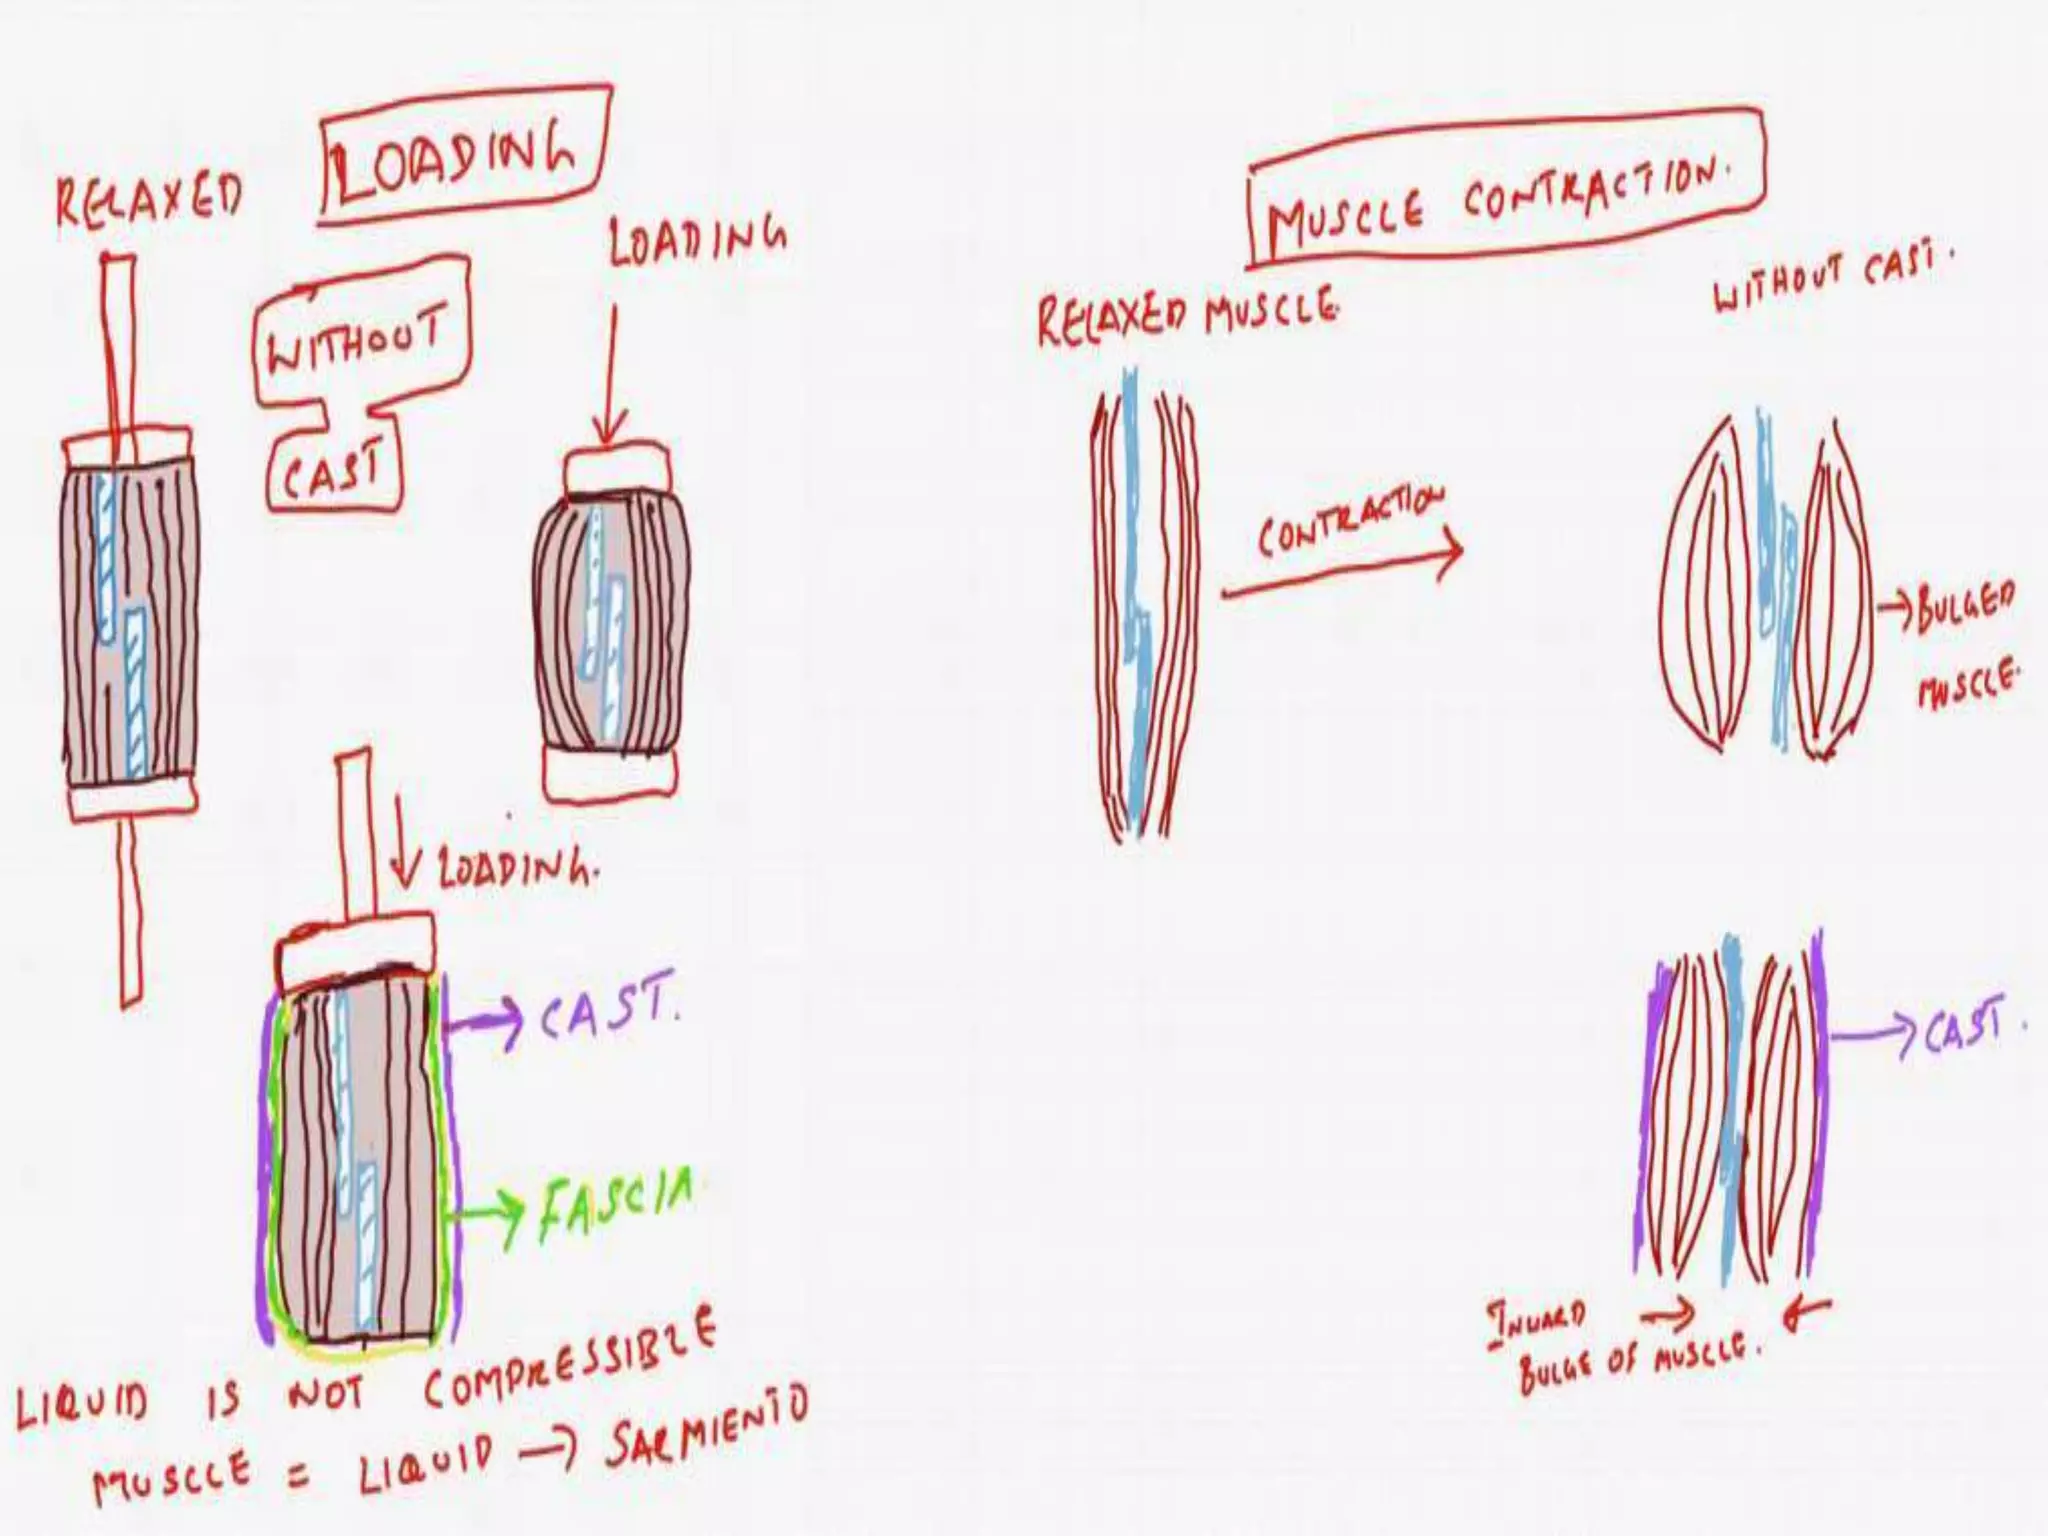 LOADING
RELAXED
LOADING
WITHOUT
CAST
LOADING.
CAST.
FASCIA
LIQUID IS NOT COMPRESSIBLE
MUSCLE = LIQUID → SARMIENTO
MUSCLE CONTRACTION.
WITHOUT CAST.
RELAXED MUSCLE
CONTRACTION
BULGED
MUSCLE.
CAST.
INWARD
BULGE OF MUSCLE.